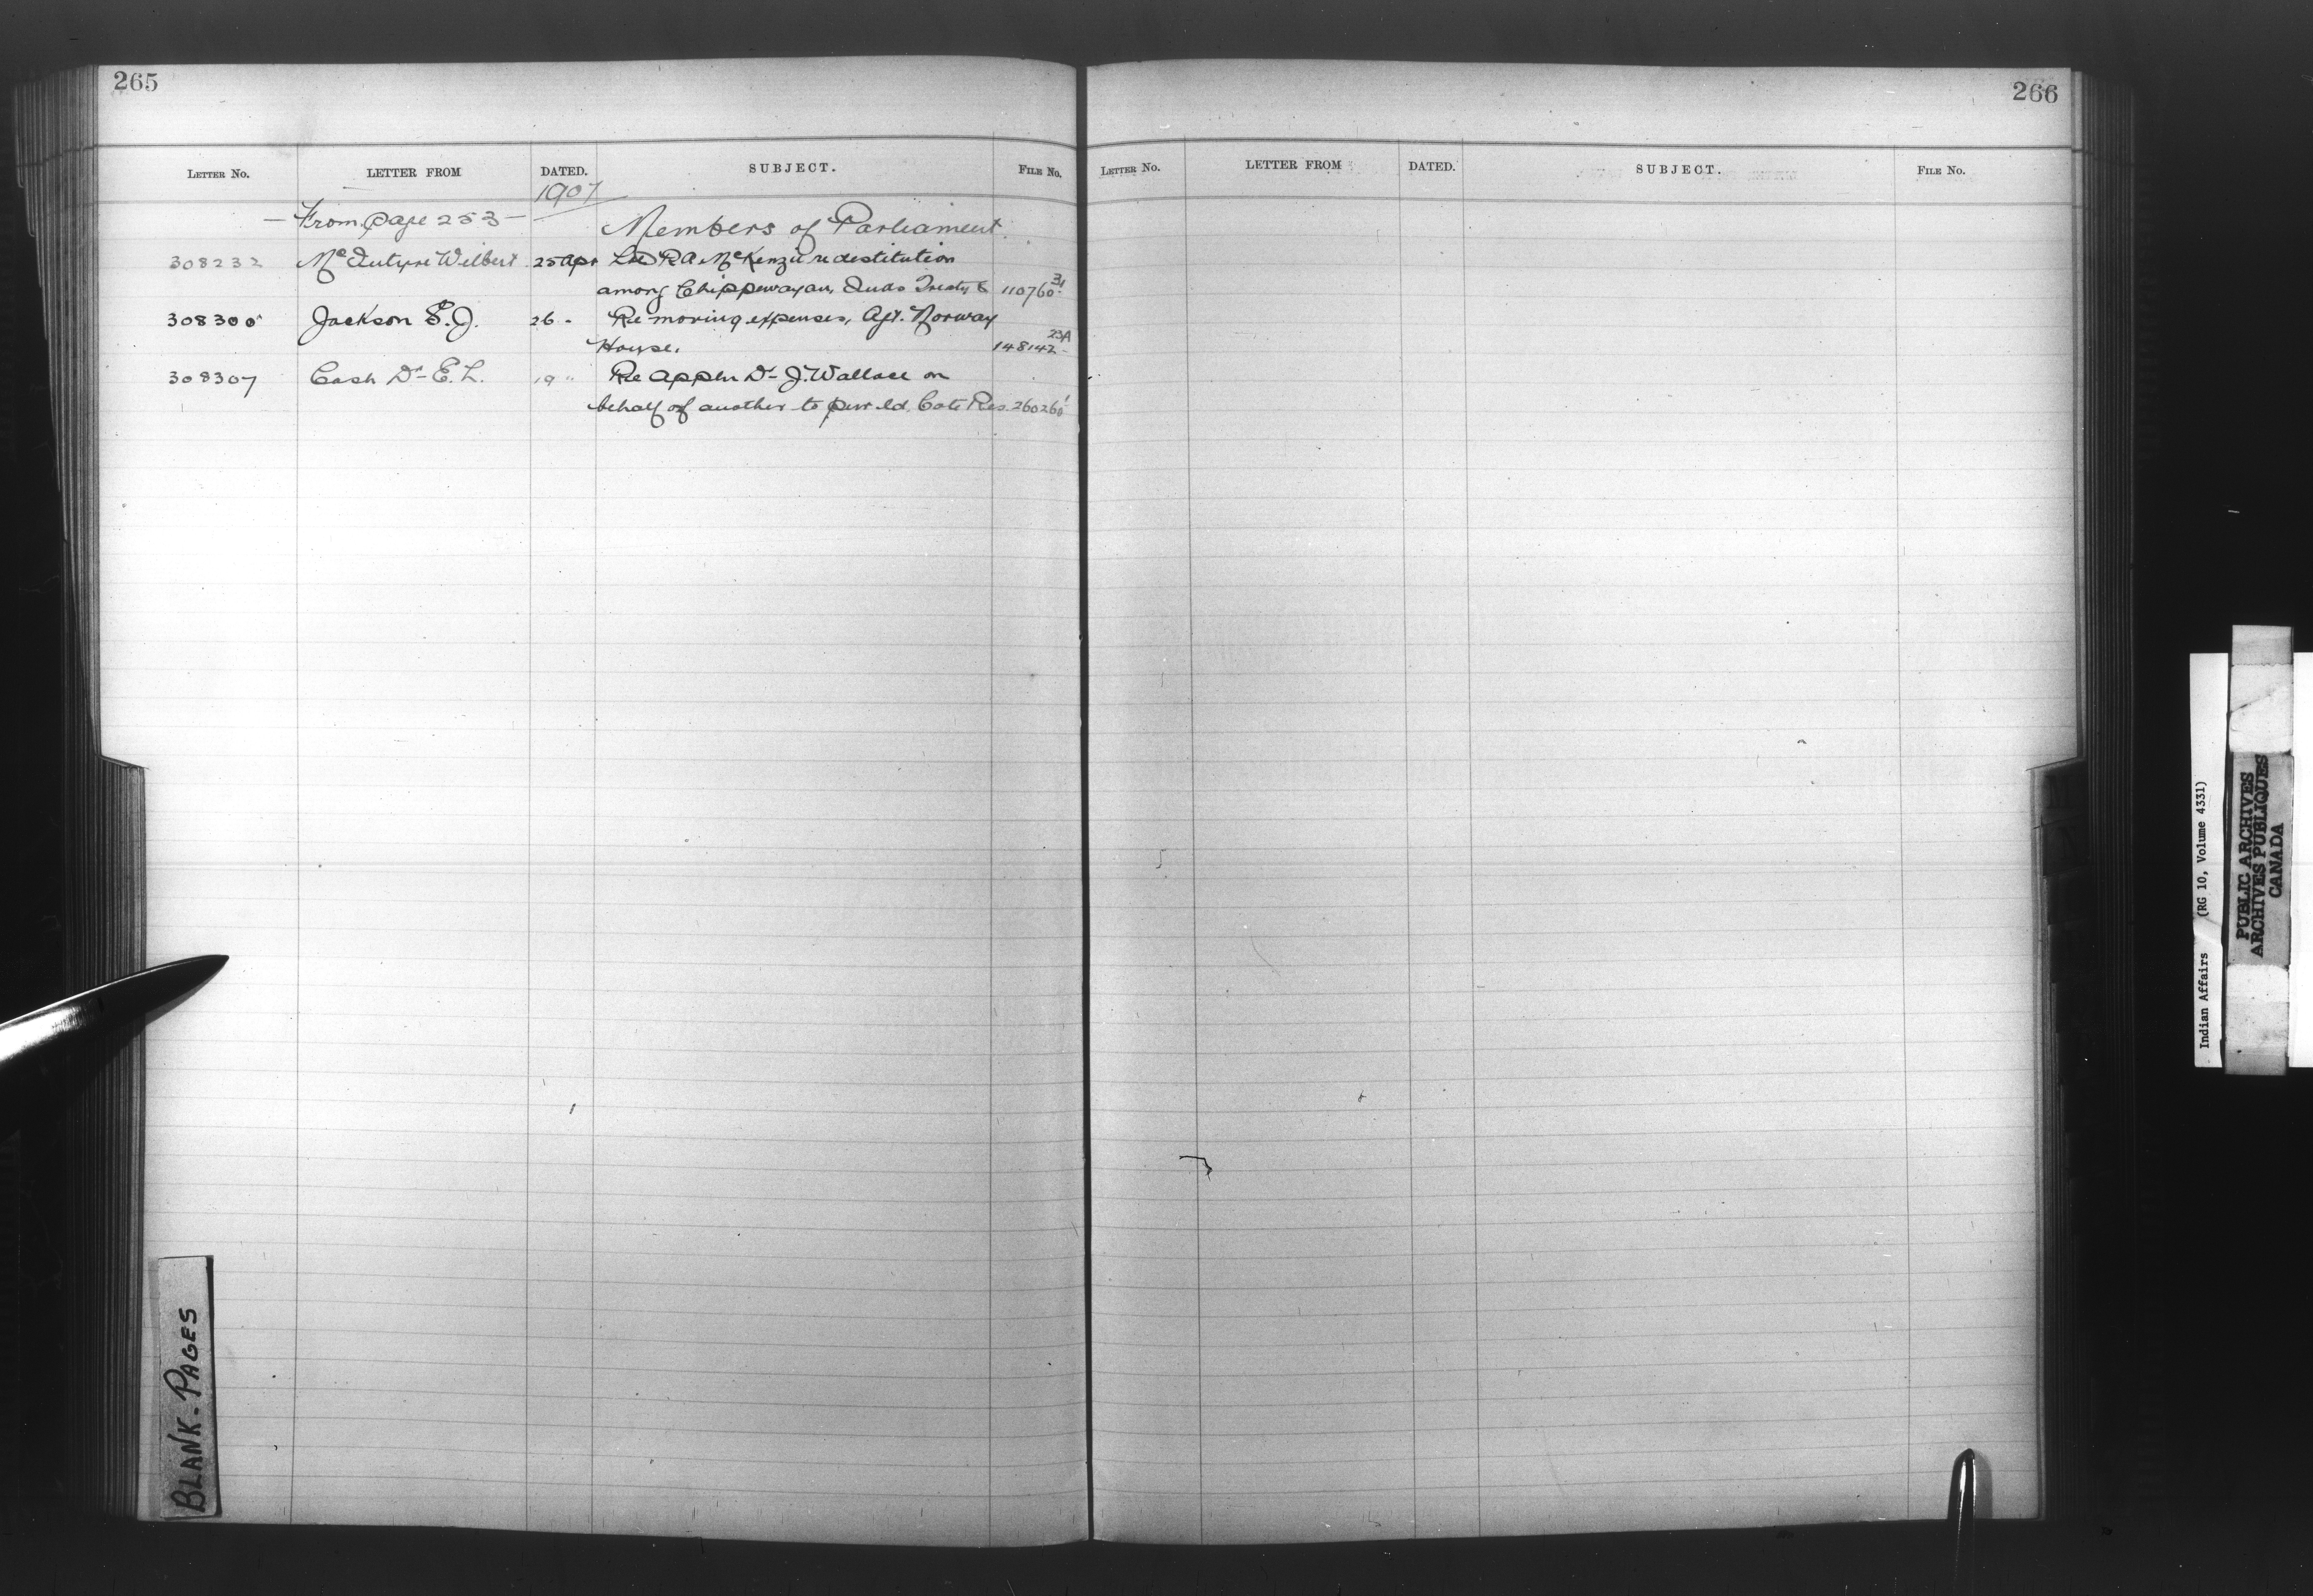 265
LETTER NO. LETTER FROM DATED. SUBJECT. FILE NO.
1907
— From page 253 — Members of Parliament
308232 McIntyre Wilbert 25 Apr R A McKenzie re destitution
among Chippewayan Inds Treaty 8 110760 31
308300 Jackson S. J. 26 - Re moving expenses, Agt. Norway
House. 148142 23A
308307 Cash Dr E. L. 19 " Re appln Dr J. Wallace on
behalf of another to pur ld. Cote Res. 260260 1
BLANK-PAGES
266
LETTER NO. LETTER FROM DATED. SUBJECT. FILE NO.
Indian Affairs (RG 10, Volume 4331)
PUBLIC ARCHIVES
ARCHIVES PUBLIQUES
CANADA